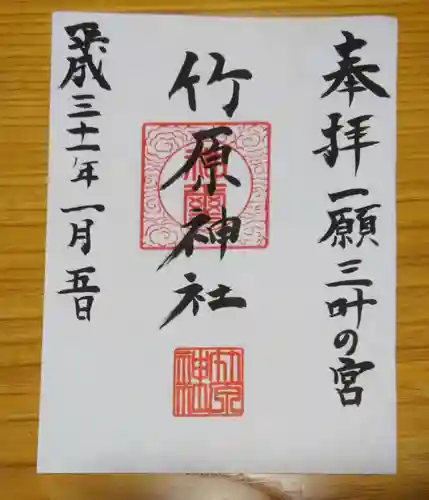 奉拝 一願三叶の宮
竹原神社
平成三十一年一月五日